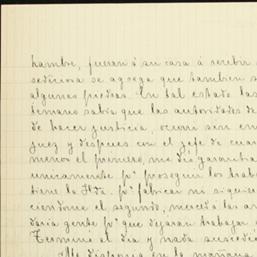 hambre, fueran á su casa á recibir
sediciosa se agrega que tambien
algunas piedras. En tal estado las
temano sabia que las autoridades de
de hacer justicia, ocurri sin em
juez y despues con el jefe de cuar
menos el primero, me dió garantia
unicamente pª proseguir los trab
tiene la Hda. pª fabricar ni siquie
ciendome el segundo, merced á las ar
daria gente pª que dejaran trabajar
Termino el dia y nada sucedió
Me disponia en la mañana